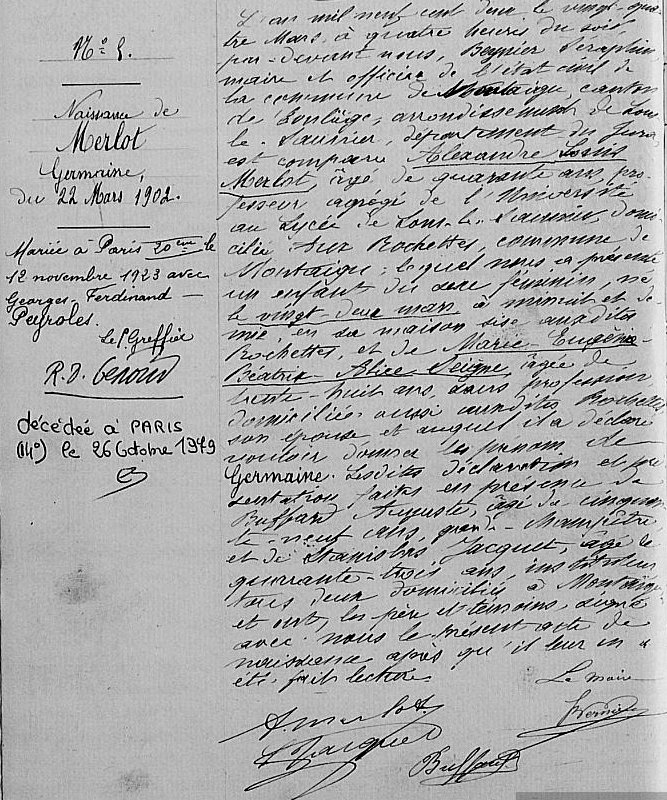 N° 5.
Naissance de
Merlot
Germaine,
du 22 Mars 1902.
Mariée à Paris 20ème le
12 novembre 1923 avec
Georges Ferdinand —
Peyroles.
Le Greffier
décédée à PARIS
(14°) le 26 Octobre 1979
L'an mil neuf cent deux le vingt-qua-
tre Mars, à quatre heures du soir,
par-devant nous, Séraphin
maire et officier de l'état civil de
la commune de Montaigu, canton
de Conliège, arrondissement de Lons
le Saunier, département du Jura
est comparu Alexandre Louis
Merlot, âgé de quarante ans, pro-
fesseur agrégé de l'Université
au Lycée de Lons-le-Saunier, domi-
cilié aux Rochettes, commune de
Montaigu; lequel nous a présenté
un enfant du sexe féminin, né
le vingt deux mars à minuit et de-
mie, en sa maison sise auxdites
Rochettes, et de Marie-Eugénie-
Béatrix-Alice Seigne, âgée de
trente-huit ans, sans profession,
domiciliée aussi auxdites Rochettes
son épouse et auquel il a déclaré
vouloir donner les prénoms de
Germaine. Lesdites déclaration et pré-
sentation faites en présence de
Buffard Auguste, âgé de cinquan-
te-neuf ans, garde-champêtre
et de Stanislas Jacquet, âgé de
quarante-trois ans instituteur
tous deux domiciliés à Montaigu
et ont, les père et témoins, signé
avec nous le présent acte de
naissance après qu'il leur en a
été fait lecture.
Le maire
A. Merlot
Jacquet
Buffard